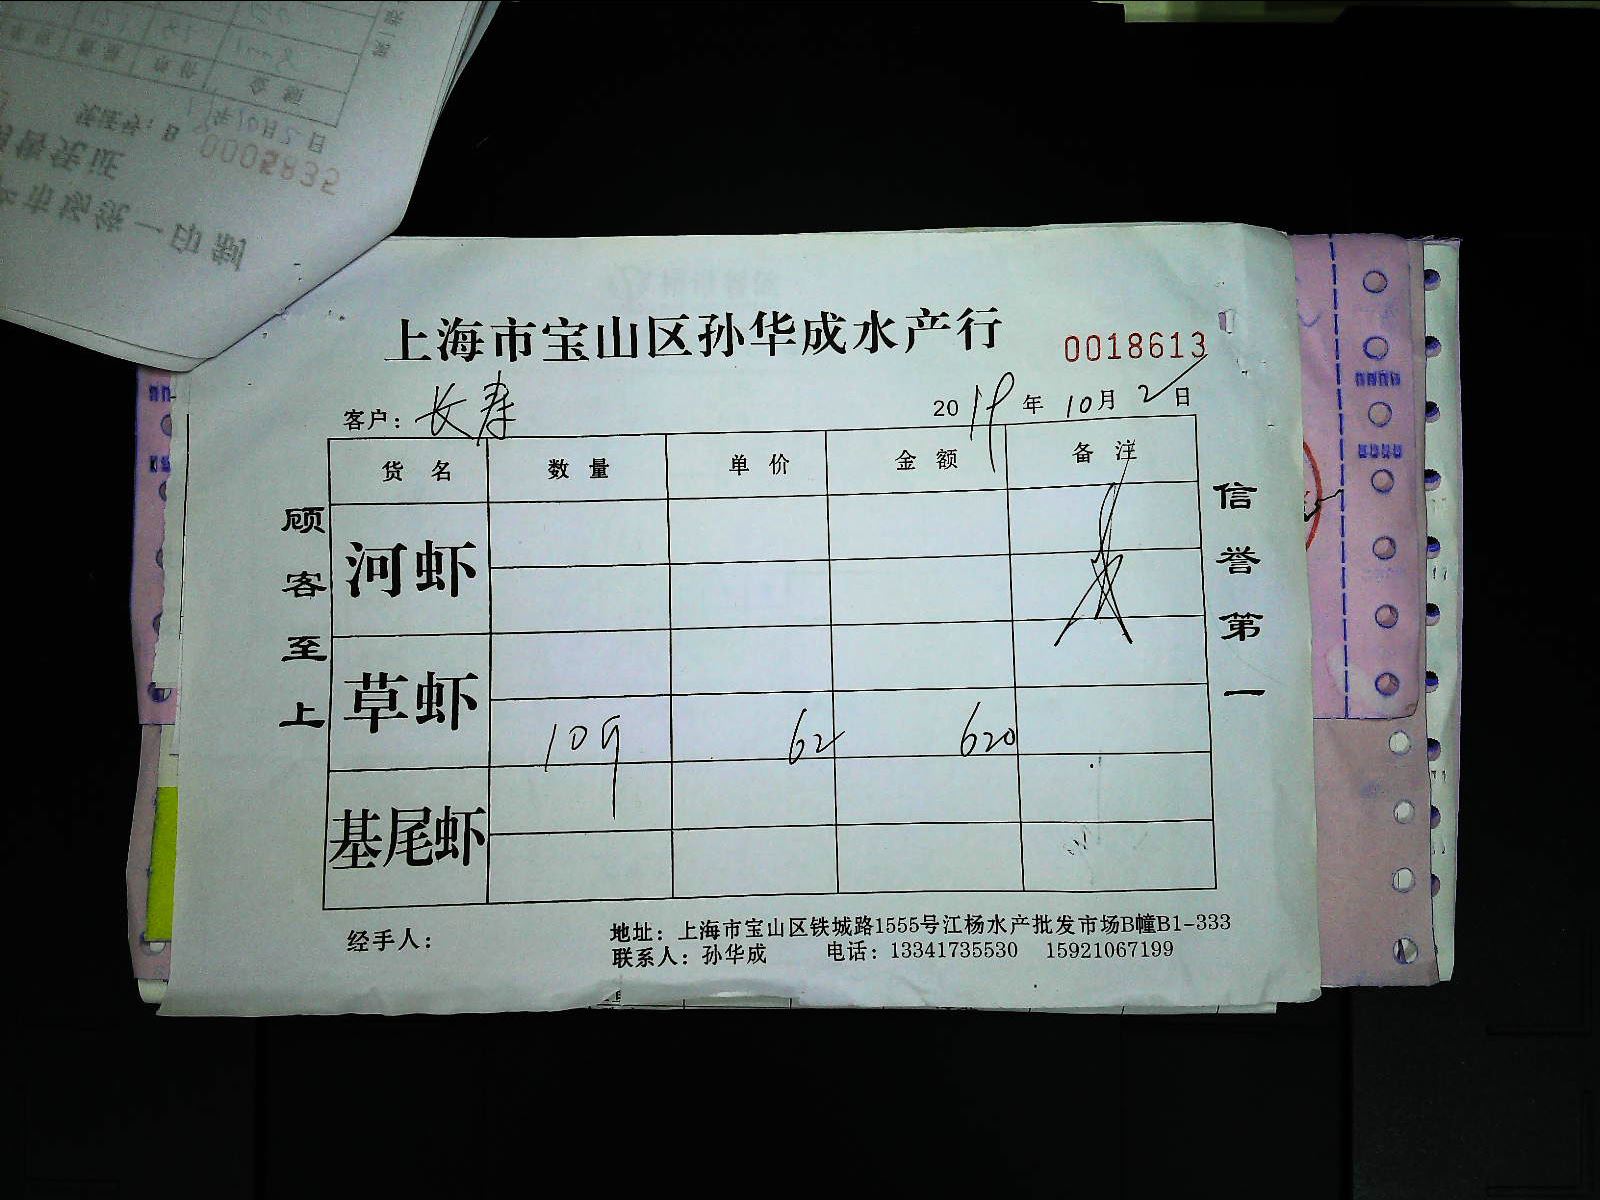 上海市宝山区孙华成水产行 0018613
客户：长寿 2019年10月2日
货名 数量 单价 金额 备注
河虾
草虾
10斤 62 620
基尾虾
顾客至上
信誉第一
经手人：
地址：上海市宝山区铁城路1555号江杨水产批发市场B幢B1-333
联系人：孙华成 电话：13341735530 15921067199
0005835
市场统一印制